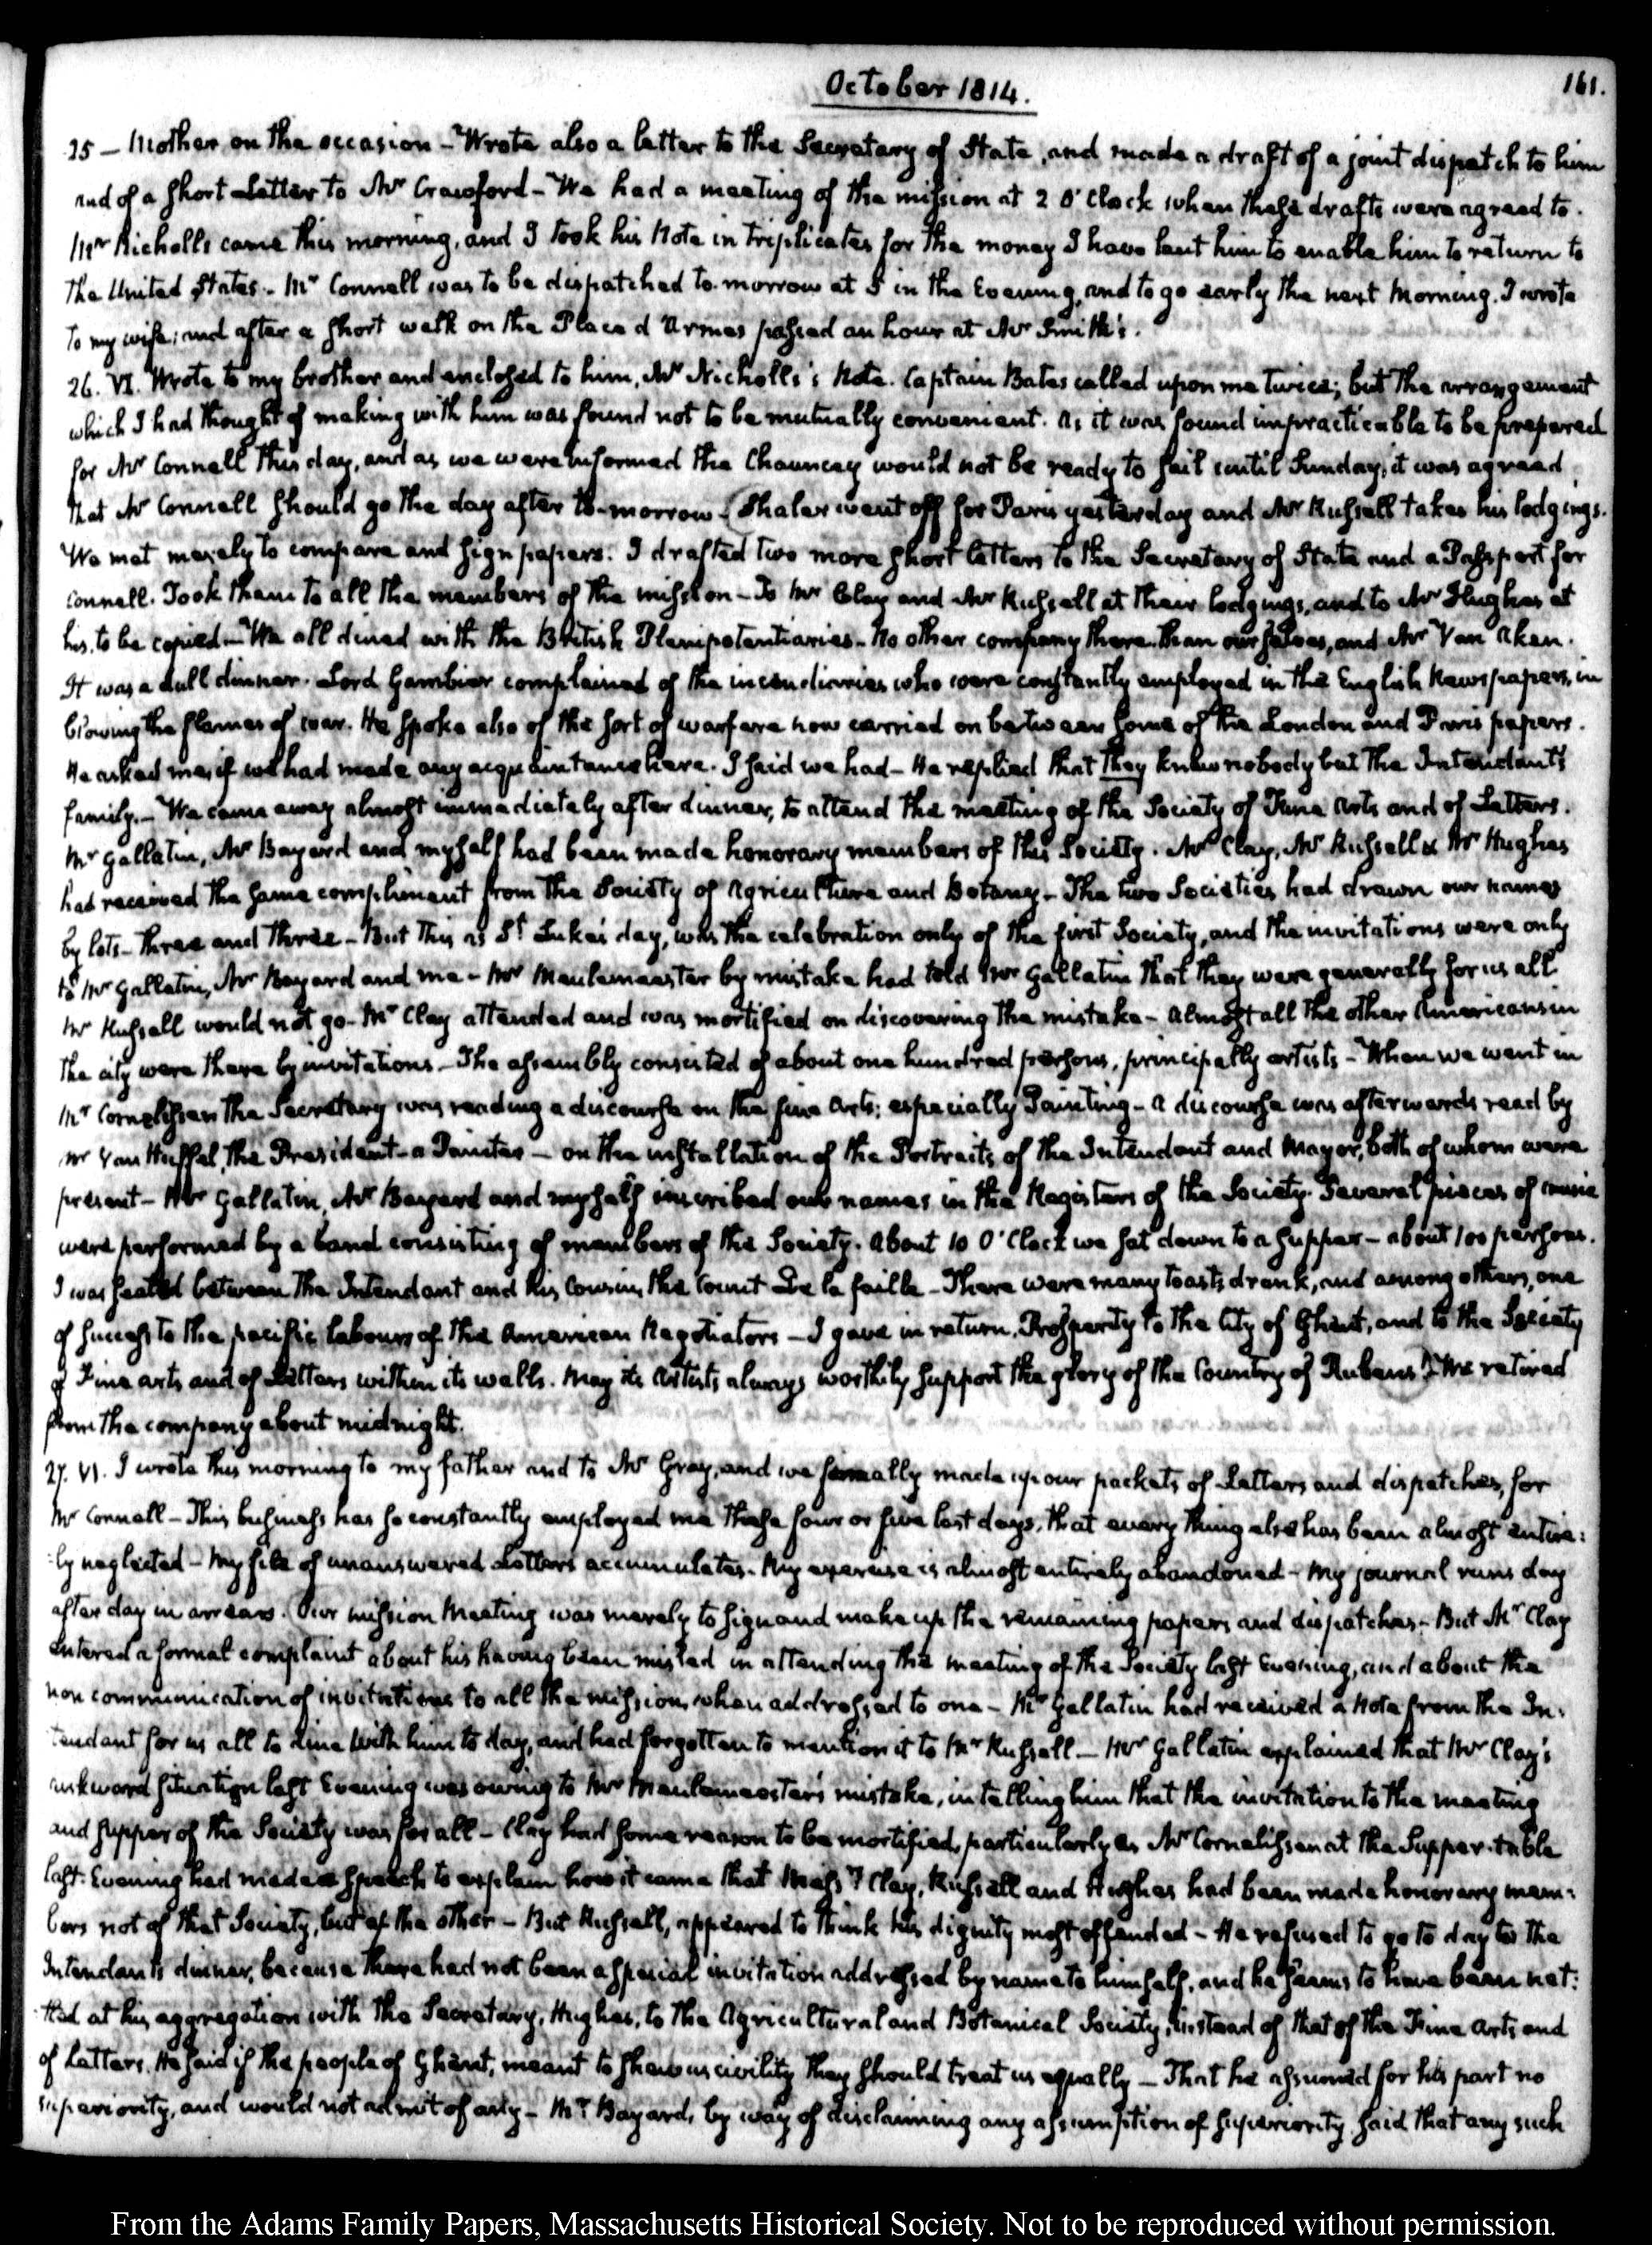 October 1814.
161.
25 — Mother on the occasion – Wrote also a letter to the Secretary of State, and made a draft of a joint dispatch to him
and of a short Letter to Mr Crawford – We had a meeting of the mission at 2 O'Clock when these drafts were agreed to.
Mr Nicholls came this morning, and I took his Note in triplicates for the money I have lent him to enable him to return to
the United States – Mr Connell was to be dispatched to-morrow at in the Evening, and to go early the next Morning. I wrote
to my wife: and after a short walk on the Place d'Armes passed an hour at Mr Smith's.
26. VI. Wrote to my brother and enclosed to him, Mr Nicholls's Note. Captain Bates called upon me twice; but the arrangement
which I had thought of making with him was found not to be mutually convenient. As it was found impracticable to be prepared
for Mr Connell this day, and as we were informed the Chauncey would not be ready to sail until Sunday, it was agreed
that Mr Connell should go the day after to-morrow – Shaler went off for Paris yesterday and Mr Russell takes his lodgings.
We met merely to compare and sign papers. I drafted two more short letters to the Secretary of State and a Passport for
Connell. Took them to all the members of the mission – To Mr Clay and Mr Russell at their lodgings, and to Mr Hughes at
his, to be copied – We all dined with the British Plenipotentiaries – No other company there than ourselves, and Mr Van Aken.
It was a dull dinner. Lord Gambier complained of the incendiaries who were constantly employed in the English Newspapers, in
blowing the flames of war. He spoke also of the sort of warfare now carried on between some of the London and Paris papers.
He asked me, if we had made any acquaintance here. I said we had – He replied that they knew nobody but the Intendant's
family. – We came away almost immediately after dinner, to attend the meeting of the Society of Fine Arts and of Letters.
Mr Gallatin, Mr Bayard and myself had been made honorary members of this Society. Mr Clay, Mr Russell & Mr Hughes
had received the same compliment from the Society of Agriculture and Botany – The two Societies had drawn our names
by lots – three and three – But this as St Luke's day, was the celebration only of the first Society, and the invitations were only
to Mr Gallatin, Mr Bayard and me – Mr Meulemeester by mistake had told Mr Gallatin that they were generally for us all
Mr Russell would not go – Mr Clay attended and was mortified on discovering the mistake – Almost all the other Americans in
the city were there by invitations – The assembly consisted of about one hundred persons, principally artists – When we went in
Mr Cornelissen the Secretary was reading a discourse on the fine Arts; especially Painting – A discourse was afterwards read by
Mr Van Huffel, the President – a Painter – on the installation of the Portraits of the Intendant and Mayor, both of whom were
present – Mr Gallatin, Mr Bayard and myself inscribed our names in the Registers of the Society. Several pieces of music
were performed by a band consisting of members of the Society. About 10 O'Clock we sat down to a supper – about 100 persons.
I was seated between the Intendant and his Cousin, the Count De la faille – There were many toasts drank, and among others, one
of success to the pacific labours of the American Negotiators – I gave in return, Prosperity to the City of Ghent, and to the Society
of Fine arts and of Letters within its walls. May its Artists always worthily support the glory of the Country of Rubens! We retired
from the company about midnight.
27. VI. I wrote this morning to my father and to Mr Gray, and we finally made up our packets of Letters and dispatches, for
Mr Connell – This business has so constantly employed me these four or five last days, that every thing else has been almost entire:
:ly neglected – My file of unanswered Letters accumulates. My exercise is almost entirely abandoned – My journal runs day
after day in arrears. Our mission Meeting was merely to sign and make up the remaining papers and dispatches – But Mr Clay
entered a formal complaint about his having been misled in attending the meeting of the Society last Evening, and about the
non communication of invitations to all the mission, when addressed to one – Mr Gallatin had received a Note from the In:
tendant for us all to dine with him to day, and had forgotten to mention it to Mr Russell – Mr Gallatin explained that Mr Clay's
awkward situation last Evening was owing to Mr Meulemeester's mistake, in telling him that the invitation to the meeting
and supper of the Society was for all – Clay had some reason to be mortified, particularly as Mr Cornelissen at the Supper-table
last Evening had made a speech to explain how it came that Messrs Clay, Russell and Hughes had been made honorary mem:
bers not of that Society, but of the other – But Russell, appeared to think his dignity most offended – He refused to go to day to the
Intendant's dinner, because there had not been a special invitation addressed by name to himself, and he seems to have been net:
:tled at his aggregation with the Secretary, Hughes, to the Agricultural and Botanical Society, instead of that of the Fine Arts and
of Letters. He said if the people of Ghent, meant to shew us civility they should treat us equally – That he assumed for his part no
superiority, and would not admit of any – Mr Bayard, by way of disclaiming any assumption of superiority said that any such
From the Adams Family Papers, Massachusetts Historical Society. Not to be reproduced without permission.